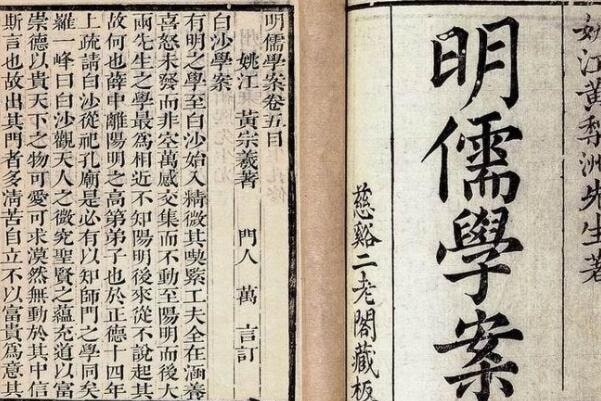 姚江黃棃洲先生著
明儒學案
慈谿二老閣藏板
明儒學案卷五目
姚江 黃宗羲著 門人 萬 言訂
白沙學案
有明之學至白沙始入精微其喫緊工夫全在涵養
喜怒未發而非空萬感交集而不動至陽明而後大
兩先生之學最爲相近不知陽明後來從不說起其
故何也薛中離陽明之高第弟子也於正德十四年
上疏請白沙從祀孔廟是必有以知師門之學同矣
羅一峰曰白沙觀天人之微究聖賢之蘊充道以富
崇德以貴天下之物可愛可求漠然無動於其中信
斯言也故出其門者多清苦自立不以富貴爲意其